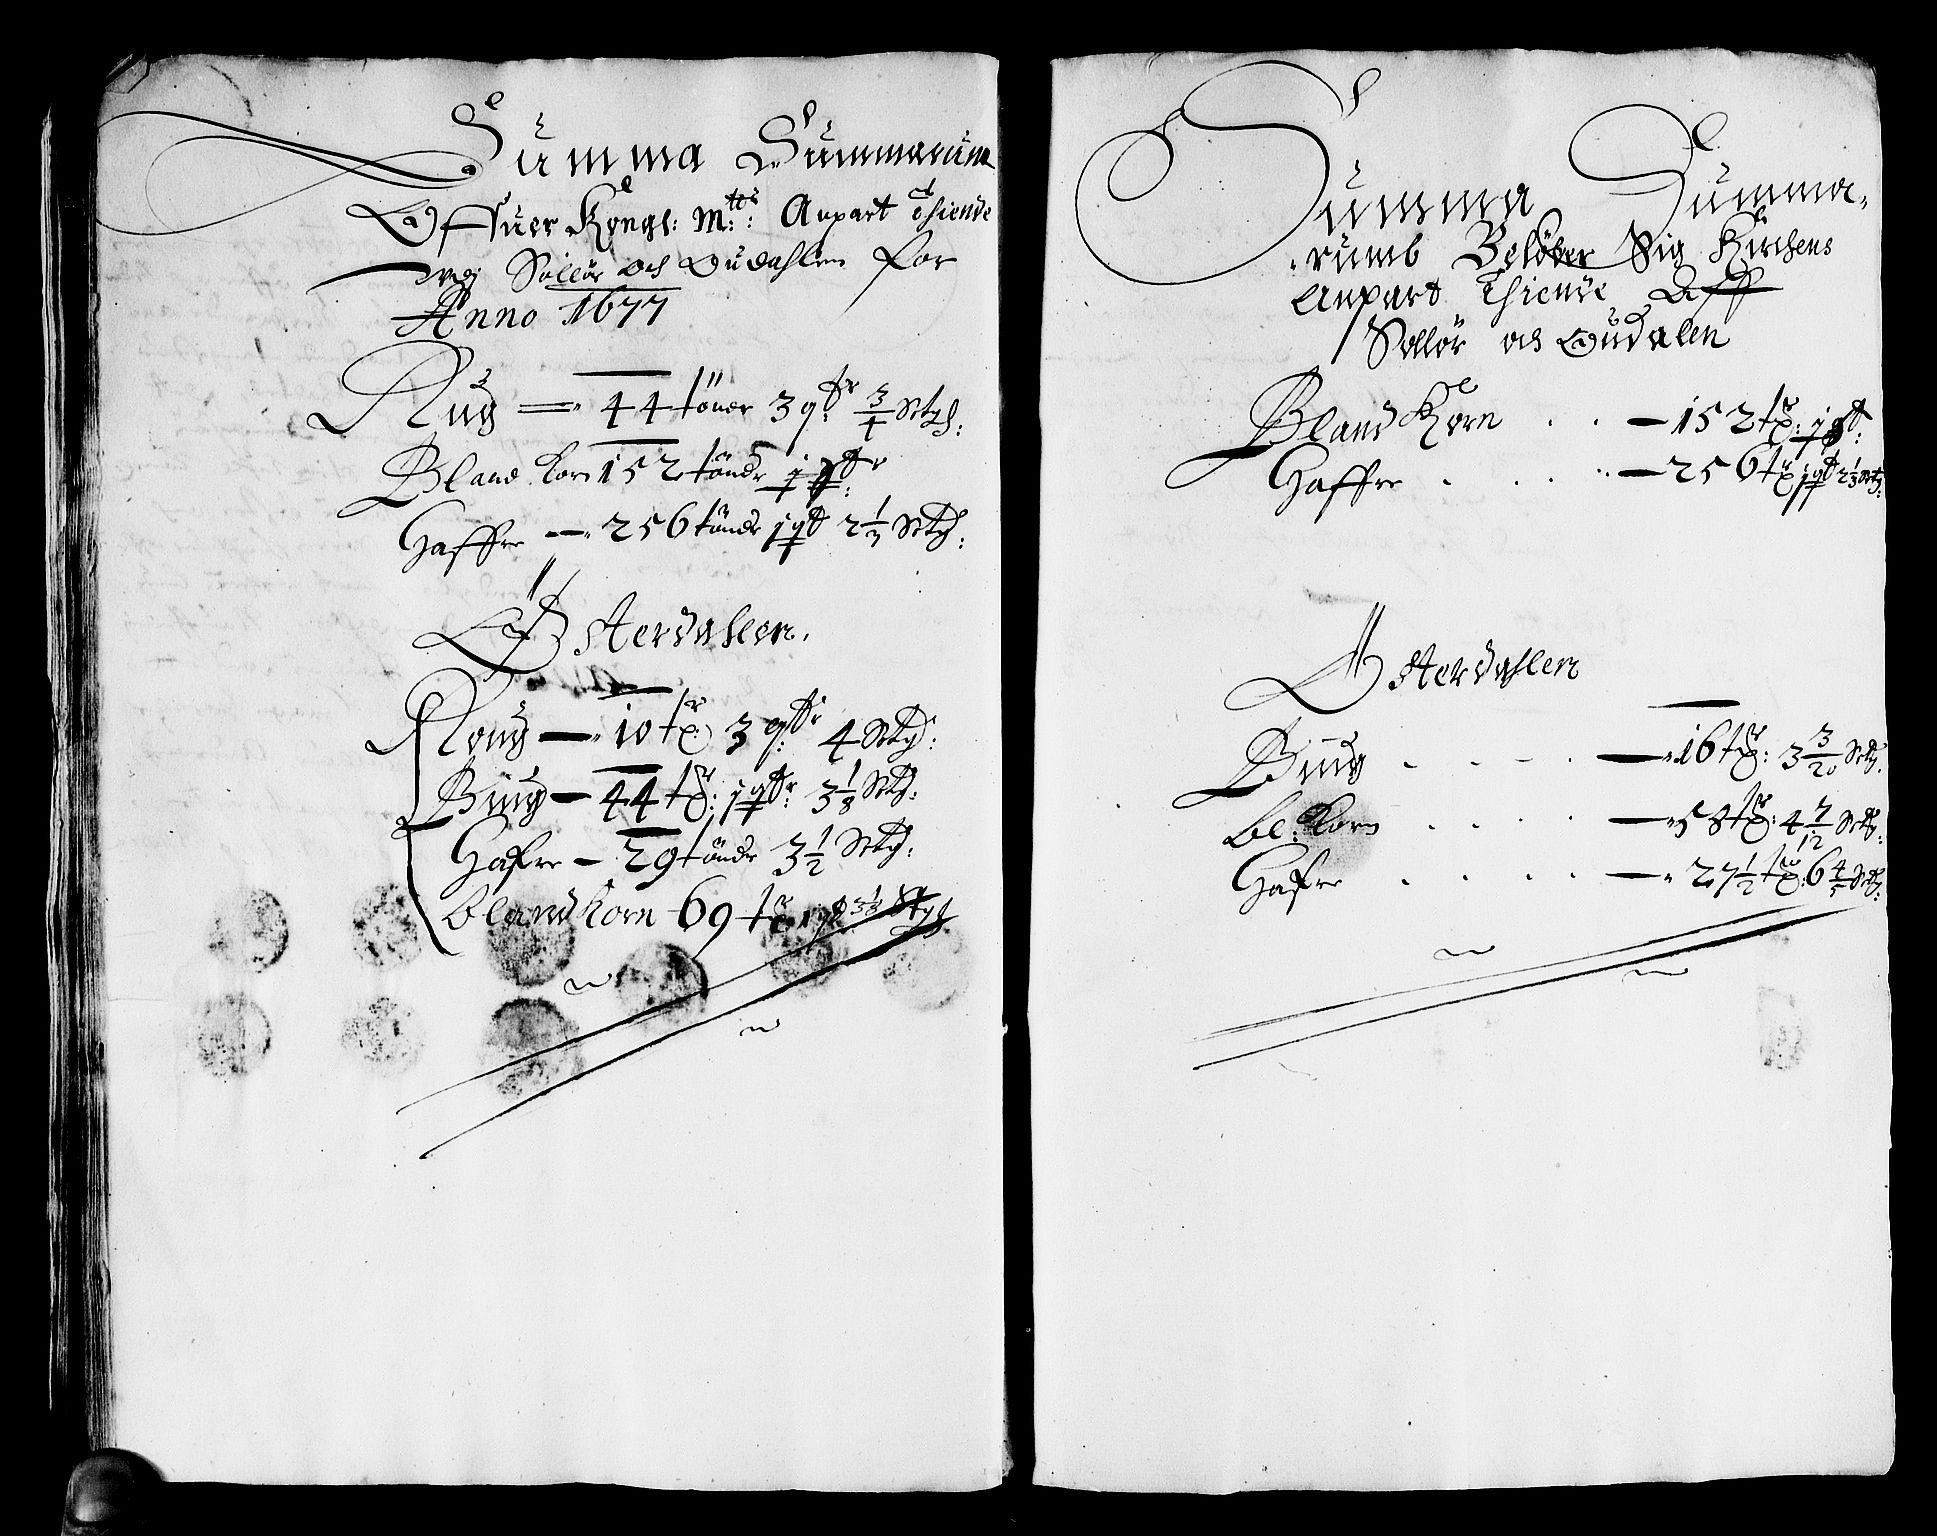 Summa Summarum
Offuer Kongl: M:tts: Anpart Thiende
udj Sollør och Oudahlen for
Anno 1677
Rug — 44 tønder 3 qtr: 3/4 Sktg:
Bland korn 152 tønder j qtr:
Haffre — 256 tønde j qt 2 1/3 Sktg:
Østerdahlen.
Roug — 10 tr: 3 qtr: 4 Sktg:
Biug — 44 tr: j qtr: 3 1/8 Sktg:
Hafre — 29 tønde 3 1/2 Sktg:
blandkorn 69 tr j qt 3 1/8 Sktg
Summa Summa-
rumb Beløber Sig Kirchens
Anpart Thiende Aff
Sollør och Oudalen
Bland Korn . . — 152 tr: j qt:
Haffre . . . — 256 tr j qt 2 1/3 Sktg:
Østerdahlen
Biug . . . — 16 tr: 3 3/20 Sktg.
bl: korn . . . . — 58 tr: 4 7/12 Sktg:
Hafre . . . . — 27 1/2 tr: 6 4/5 Sktg: